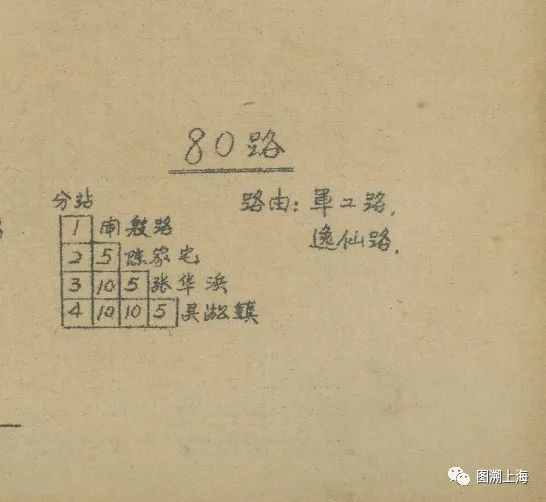 80路
分站
路由：軍工路.
逸仙路.
1 闸殷路
2 5 陈家宅
3 10 5 张华浜
4 10 10 5 吴淞镇
图溯上海